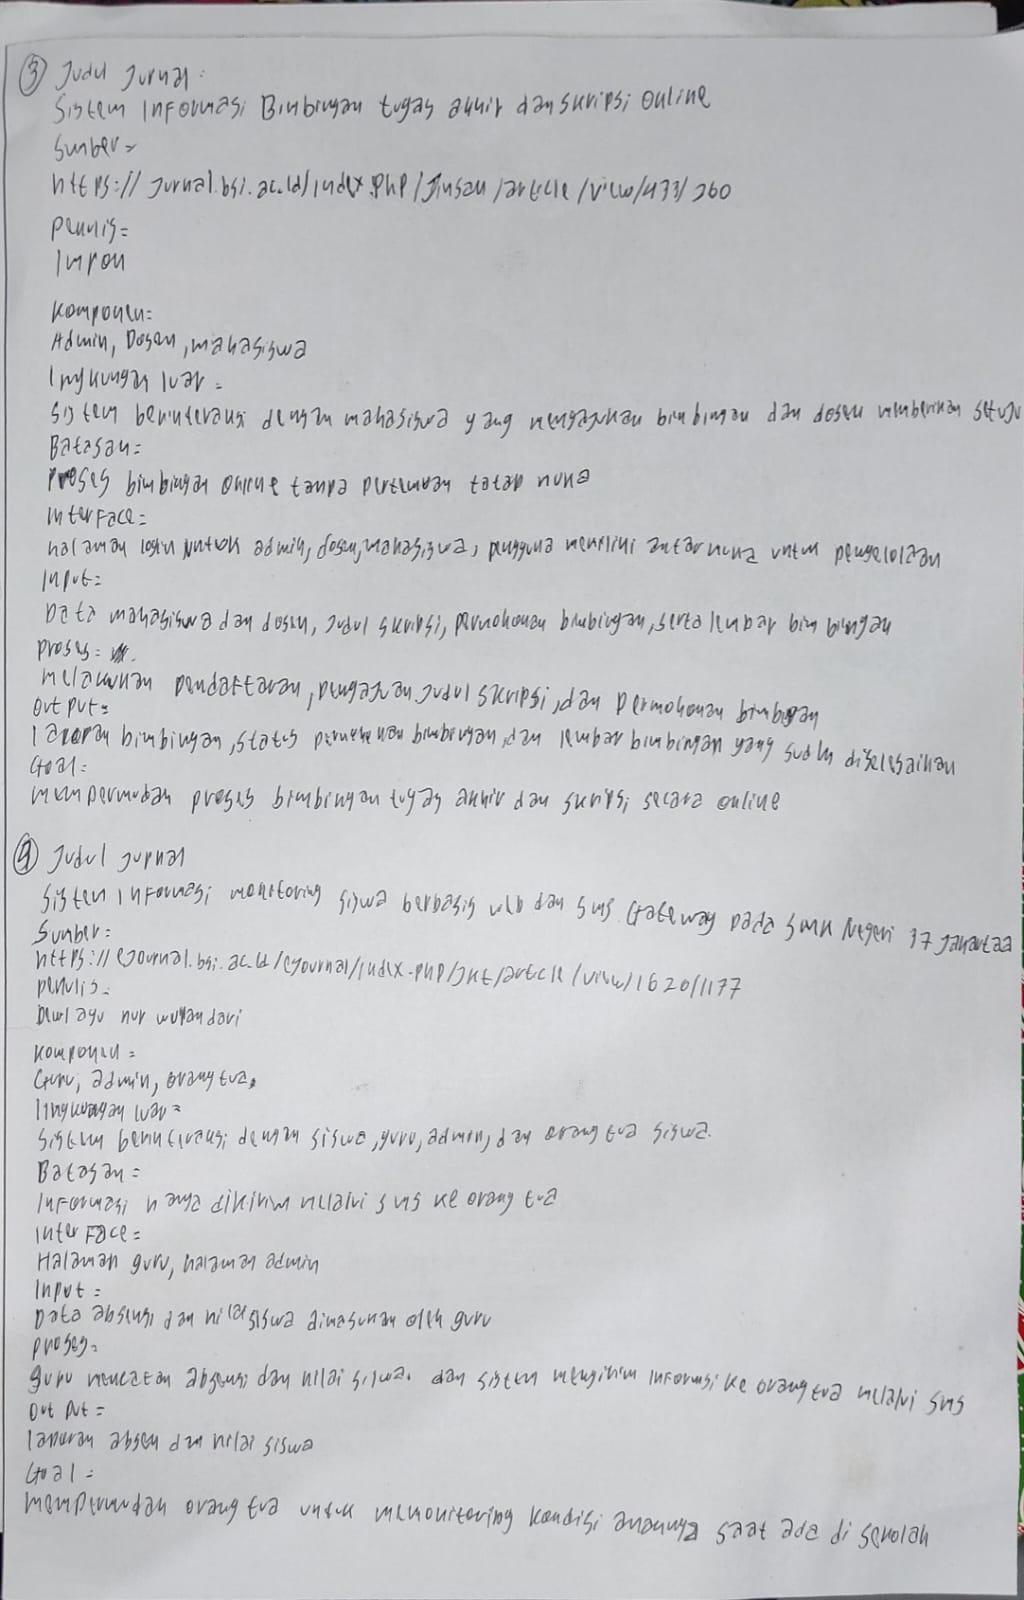 ③ Judul Jurnal :
Sistem Informasi Bimbingan tugas akhir dan skripsi online
Sumber =
https://jurnal.bsi.ac.id/index.php/Jinsan/article/view/433/260
Penulis =
Imron
Komponen =
Admin, Dosen, mahasiswa
lingkungan luar =
Sistem berinteraksi dengan mahasiswa yang mengajukan bimbingan dan dosen memberikan setuju
Batasan =
Proses bimbingan online tanpa pertemuan tatap muka
Interface =
halaman login untuk admin, dosen, mahasiswa, pengguna memiliki antar muka untuk pengelolaan
Input =
Data mahasiswa dan dosen, judul skripsi, permohonan bimbingan, serta lembar bimbingan
Proses =
melakukan pendaftaran, pengajuan judul skripsi, dan permohonan bimbingan
Output =
laporan bimbingan, status permohonan bimbingan, dan lembar bimbingan yang sudah diselesaikan
Goal =
mempermudah proses bimbingan tugas akhir dan skripsi secara online
④ Judul jurnal
Sistem Informasi monitoring siswa berbasis web dan sms Gateway pada SMK Negeri 37 Jakartaa
Sumber =
https://ejournal.bsi.ac.id/ejournal/index.php/Jut/article/view/1620/1177
penulis =
Dewi ayu nur wulandari
Komponen =
Guru, admin, orang tua.
lingkungan luar =
Sistem berinteraksi dengan siswa, guru, admin, dan orang tua siswa.
Batasan =
Informasi hanya dikirim melalui sms ke orang tua
Interface =
Halaman guru, halaman admin
Input =
Data absensi dan nilai siswa dimasukan oleh guru
Proses =
guru mencatan absensi dan nilai siswa. dan sistem mengirim informsi ke orang tua melalui sms
Out put =
laporan absen dan nilai siswa
Goal =
mempermudah orang tua untuk memonitoring kondisi anaknya saat ada di sekolah